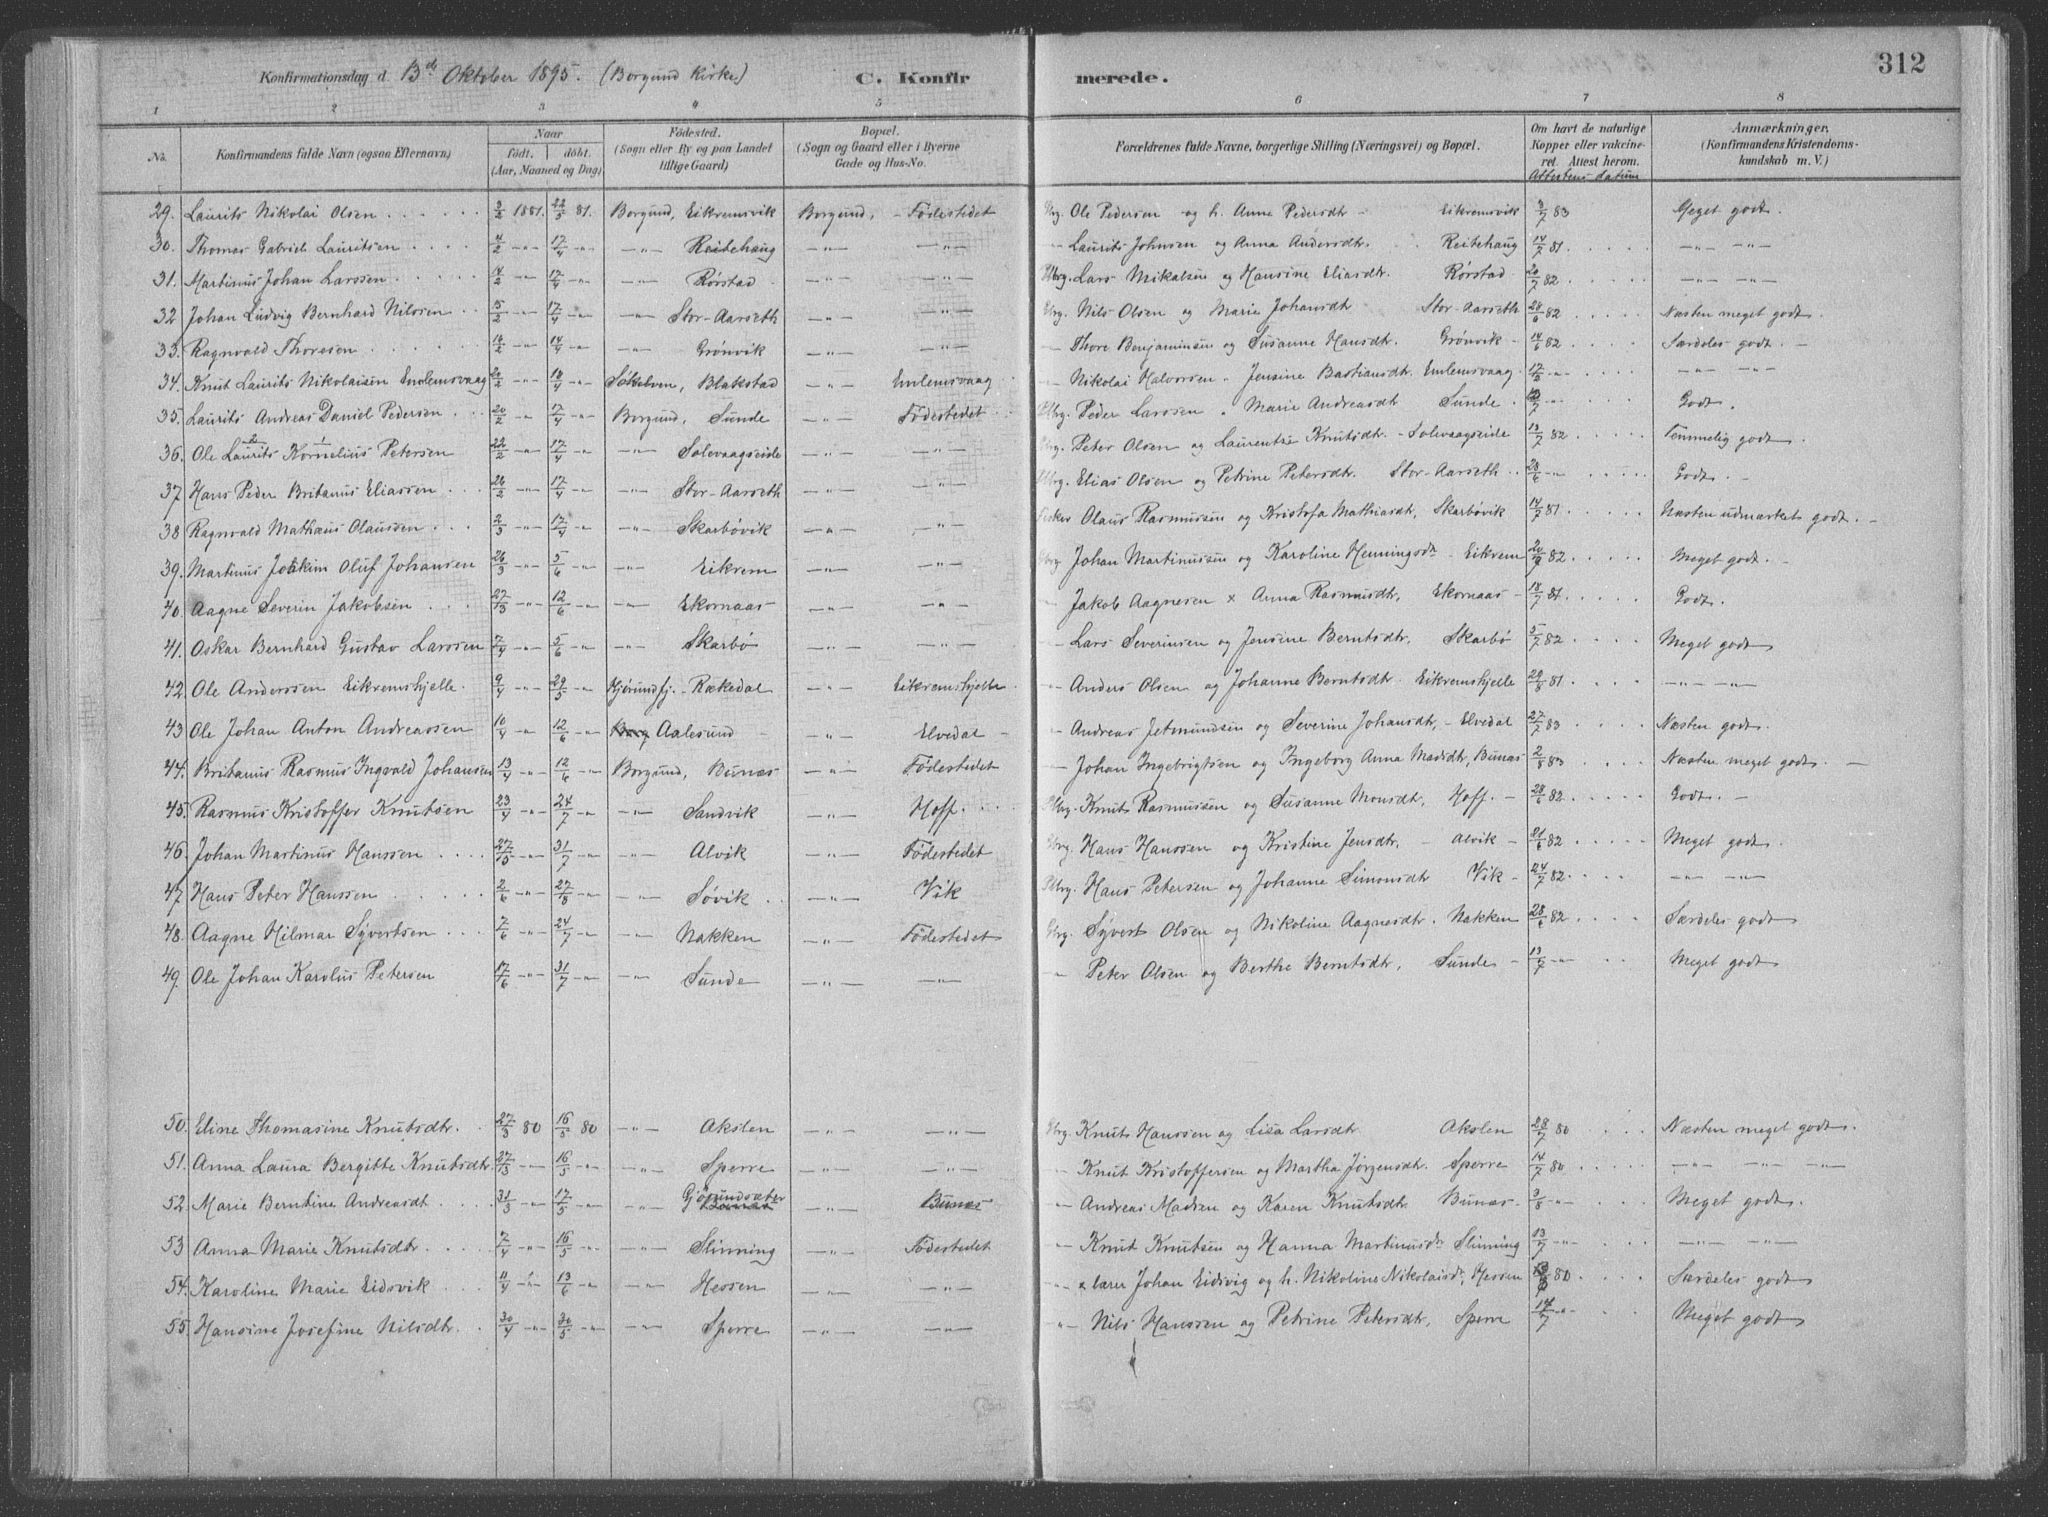 312
Konfirmationsdag d. 13de Oktober 1895. (Borgund Kirke) C. Konfirmerede.
1 2 3 4 5 6 7 8
No. Konfirmandens fulde Navn (ogsaa Efternavn) Naar født. døbt. (Aar, Maaned og Dag) Fødested. (Sogn eller By og paa Landet tillige Gaard) Bopæl. (Sogn og Gaard eller i Byerne Gade og Hus-No. Forældrenes fulde Navne, borgerlige Stilling (Næringsvei) og Bopæl. Om havt de naturlige Kopper eller vakcineret. Attest herom. Attestens datum Anmærkninger. (Konfirmandens Kristendomskundskab m. V.)
29. Laurits Nikolai Olsen 3/2 1881. 22/5 81. Borgund, Eikremsvik Borgund, Fødestedet Gbrg. Ole Pedersen og h. Anne Pedersdtr Eikremsvik 3/7 83 Meget godt.
30. Thomas Gabriel Lauritsen 4/2 -"- 17/4 -"- -"- Reitehaug -"- -"- -"- Laurits Johnsen og Anna Andersdtr. Reitehaug 14/7 81 -"- -"-
31. Martinus Johan Larssen 14/2 -"- 17/4 -"- -"- Rørstad -"- -"- Lars Mikalsen og Hansine Eliasdtr. Rørstad 20/7 82 -"- -"-
32 Johan Ludvig Bernhard Nilssen 15/2 -"- 17/4 -"- -"- Stor-Aarseth -"- -"- Gbrg. Nils Olsen og Marie Johansdtr Stor-Aarseth 28/6 82 Næsten meget godt
33. Ragnvald Thoresen 16/2 -"- 14/4 -"- -"- Grønvik -"- -"- -"- Thore Benjaminsen og Susanne Hansdtr. Grønvik 14/6 82 Særdeles godt.
34. Knut Laurits Nikolaisen Emlemsvaag 20/2 -"- 18/4 -"- Søkelven, Blakstad -"- Emlemsvaag -"- Nikolai Halvorsen " Jensine Bastiansdtr. Emlemsvaag 17/3 -"- -"- -"-
35. Laurits Andreas Daniel Pedersen 20/2 -"- 17/4 -"- Borgund, Sunde -"- Fødestedet Peder Larssen " Marie Andreasdtr Sunde -"- Godt.
36. Ole Laurits Kornelius Petersen 22/2 -"- 17/4 -"- -"- Solevaagseide -"- -"- Gbrg. Peter Olsen og Laurentse Knutsdtr. Solevaagseide 13/7 82 Temmelig godt.
37 Hans Peder Britanus Eliassen 26/2 -"- 17/4 -"- -"- Stor-Aarseth -"- -"- Elias Olsen og Petrine Petersdtr. Stor-Aarseth 28/6 -"- Godt.
38 Ragnvald Mathæus Olaussen 2/3 -"- 17/4 -"- -"- Skarbøvik -"- -"- Fisker Olaus Rasmussen og Kristofa Mathiasdtr, Skarbøvik 14/7 81 Næsten udmærket godt.
39. Martinus Joakim Oluf Johansen 26/3 -"- 5/6 -"- -"- Eikrem -"- -"- Gbrg Johan Martinussen og Karoline Henningsdr Eikrem 82 Meget godt.
40. Aagne Severin Jakobsen 27/3 -"- 12/6 -"- -"- Ekornaas -"- -"- -"- Jakob Aagnesen x Anna Rasmusdtr, Ekornaas 18/7 81 Godt.
41. Oskar Bernhard Gustav Larssen 7/4 -"- 5/6 -"- -"- Skarbø -"- -"- -"- Lars Severinsen og Jensine Berntsdtr. Skarbø 5/7 82 Meget godt
42. Ole Anderssen Eikremshjelle. 9/4 -"- 29/5 -"- Hjørundfj. Rækedal -"- Eikremshjelle -"- Anders Olsen og Johanne Berntsdtr. Eikremshjelle 20/8 81 -"- -"-
43 Ole Johan Anton Andreassen 10/4 -"- 12/6 -"- Aalesund -"- Elvedal -"- Andreas Jetmundsen og Severine Johansdtr, Elvedal 27/7 83 Næsten godt.
44. Britanus Rasmus Ingvald Johansen 13/4 -"- 12/6 -"- Borgund, Bunæs -"- Fødestedet -"- Johan Ingebrigtsen og Ingeborg Anna Madsdtr, Bunæs 2/8 83 Næsten meget godt.
45. Rasmus Kristoffer Knutsen 23/4 -"- 24/7 -"- -"- Sandvik -"- Hoff. Knut Rasmussen og Susanne Monsdtr, Hoff. 28/6 82 Godt.
46. Johan Martinus Hanssen 27/5 -"- 31/7 -"- -"- Alvik -"- Fødestedet Gbrg. Hans Hanssen og Kristine Jensdtr, Alvik 21/6 82 Meget godt
47. Hans Peter Hanssen 2/6 -"- 27/8 -"- -"- Søvik -"- Vik Hans Petersen og Johanne Simonsdtr Vik 24/7 82 -"- -"-
48. Aagne Hilmar Syvertsen 7/6 -"- 24/7 -"- -"- Nakken -"- Fødestedet Gbrg. Syvert Olsen og Nikoline Aagnesdtr. Nakken 28/6 82 Særdeles godt
49. Ole Johan Karolus Petersen 17/6 -"- 31/7 -"- -"- Sunde -"- -"- -"- Peter Olsen og Berthe Berntsdtr, Sunde 13/7 -"- Meget godt
50. Eline Thomasine Knutsdtr. 27/3 80 16/5 80 -"- Akslen -"- -"- Gbrg. Knut Hanssen og Lisa Larsdtr Akslen 28/7 80 Næsten meget godt.
51. Anna Laura Bergitte Knutsdtr 27/3 -"- 16/5 -"- -"- Sperre -"- -"- -"- Knut Kristoffersen og Martha Jørgensdtr. Sperre 14/7 80 -"- -"- -"-
52. Marie Berntine Andreasdtr 31/3 -"- 17/5 -"- -"- Gjørundsæter -"- Bunæs -"- Andreas Madsen og Karen Knutsdtr. Bunæs 3/8 -"- Meget godt.
53 Anna Marie Knutsdtr. 7/4 -"- 16/5 -"- -"- Slinning -"- Fødestedet -"- Knut Knutsen og Hanna Martinusdr Slinning 13/7 -"- -"- -"-
54. Karoline Marie Eidsvik 11/4 -"- 13/6 -"- -"- Hessen -"- -"- -"- x lærer Johan Eidsvig og h. Nikoline Nikolaisdr, Hessen 80 Særdeles godt
55. Hansine Josefine Nilsdtr. 30/4 -"- 30/5 -"- -"- Sperre -"- -"- -"- Nils Hanssen og Petrine Petersdtr, Sperre 14/7 -"- Meget godt